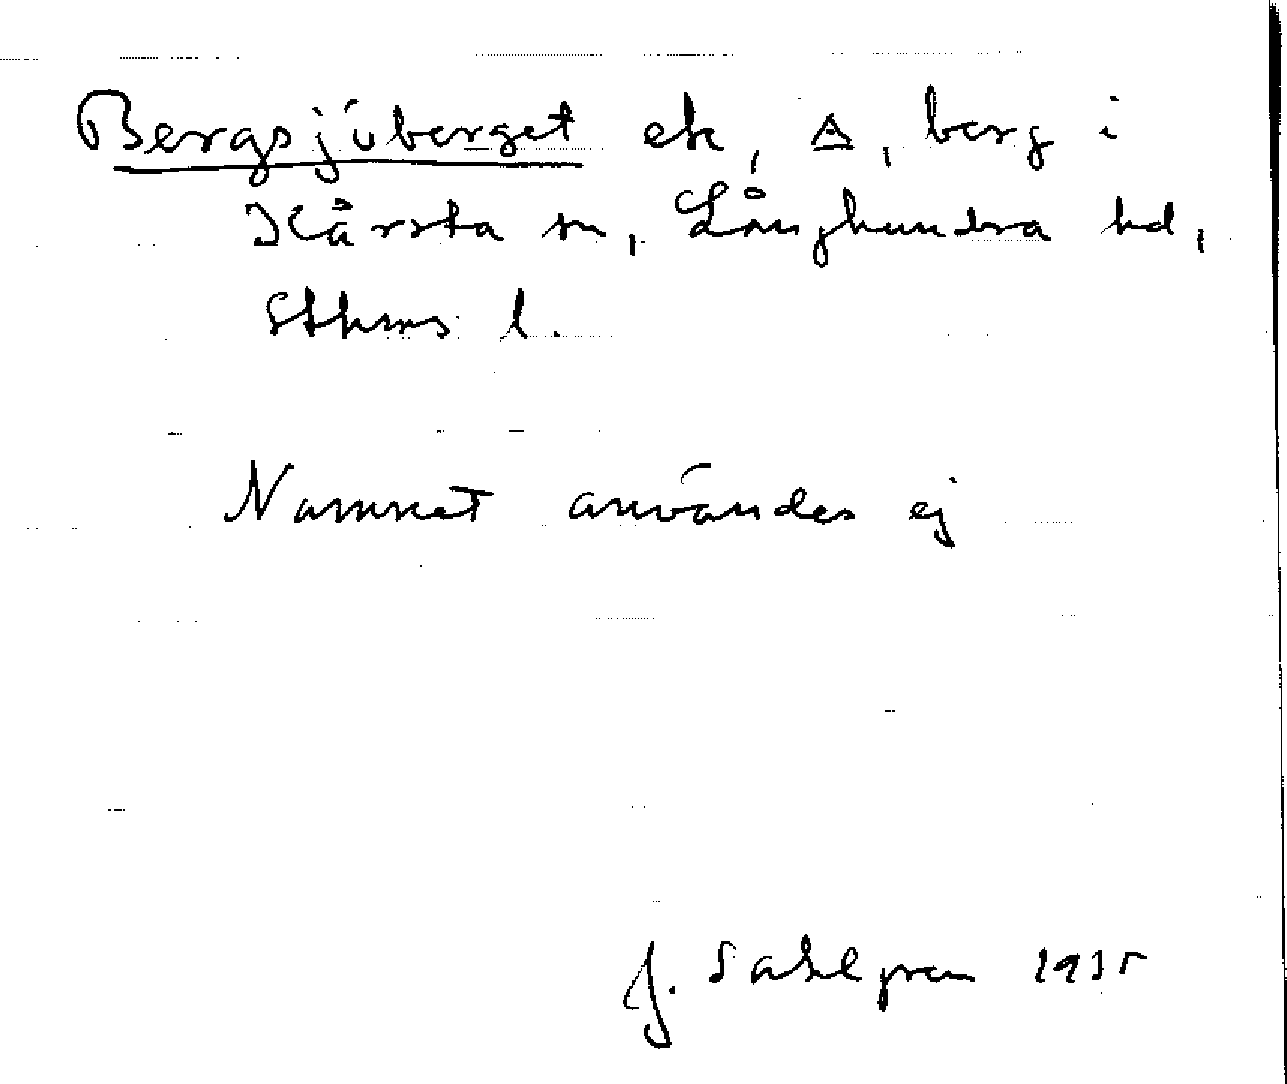 Bergsjöberget ek, △, berg i
Kårsta sn, Långhundra hd,
Sthms l.
Namnet användes ej
J. Sahlgren 1935